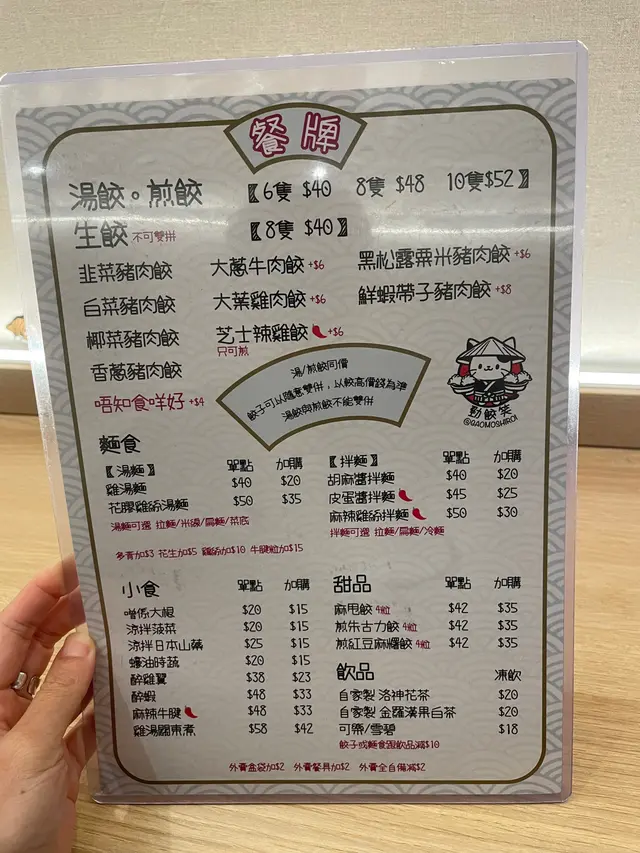 餐牌
湯餃。煎餃 【6隻 $40 8隻 $48 10隻$52】
生餃 不可雙拼 【8隻 $40】
韭菜豬肉餃 大蔥牛肉餃 +$6 黑松露粟米豬肉餃 +$6
白菜豬肉餃 大葉雞肉餃 +$6 鮮蝦帶子豬肉餃 +$8
椰菜豬肉餃 芝士辣雞餃 +$6
只可煎
香蔥豬肉餃
唔知食咩好 +$4
湯/煎餃同價
餃子可以隨意雙併，以較高價錢為準
湯餃與煎餃不能雙併
勁餃笑
@GAOMOSHIROI
麵食
【湯麵】 單點 加購
雞湯麵 $40 $20
花膠雞絲湯麵 $50 $35
湯麵可選 拉麵/米線/扁麵/菜底
多青加$3 花生加$5 雞絲加$10 牛腱粒加$15
【拌麵】 單點 加購
胡麻醬拌麵 $40 $20
皮蛋醬拌麵 $45 $25
麻辣雞絲拌麵 $50 $30
拌麵可選 拉麵/扁麵/冷麵
小食 單點 加購
噌係大根 $20 $15
涼拌菠菜 $20 $15
涼拌日本山藥 $25 $15
蠔油時蔬 $20 $15
醉雞翼 $38 $23
醉蝦 $48 $33
麻辣牛腱 $48 $33
雞湯關東煮 $58 $42
甜品 單點 加購
麻甩餃 4粒 $42 $35
煎朱古力餃 4粒 $42 $35
煎紅豆麻糬餃 4粒 $42 $35
飲品 凍飲
自家製 洛神花茶 $20
自家製 金羅漢果白茶 $20
可樂/雪碧 $18
餃子或麵食跟飲品減$10
外賣盒袋加$2 外賣餐具加$2 外賣全自備減$2